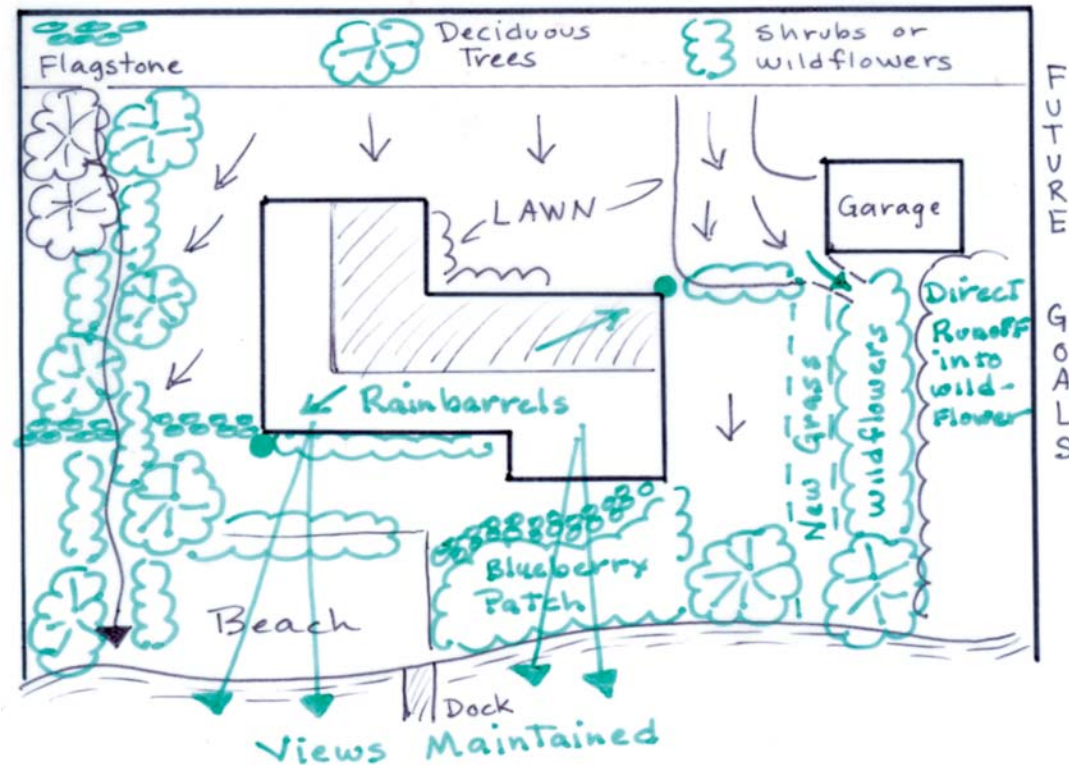 Flagstone
Deciduous
Trees
Shrubs or
wildflowers
FUTURE GOALS
LAWN
Garage
Direct
Runoff
into
wild-
flower
Rainbarrels
New Grass
wildflowers
Blueberry
Patch
Beach
Dock
Views Maintained